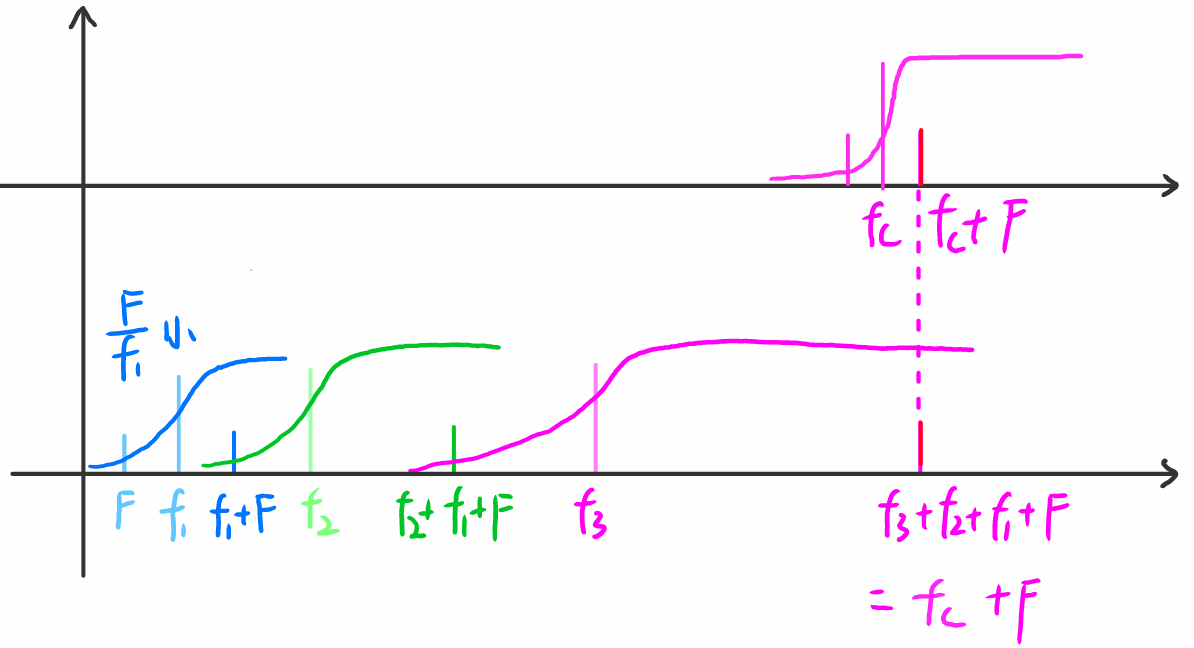 f_c f_c + F
F/f_1 小
F f_1 f_1+F f_2 f_2+f_1+F f_3 f_3+f_2+f_1+F
= f_c + F